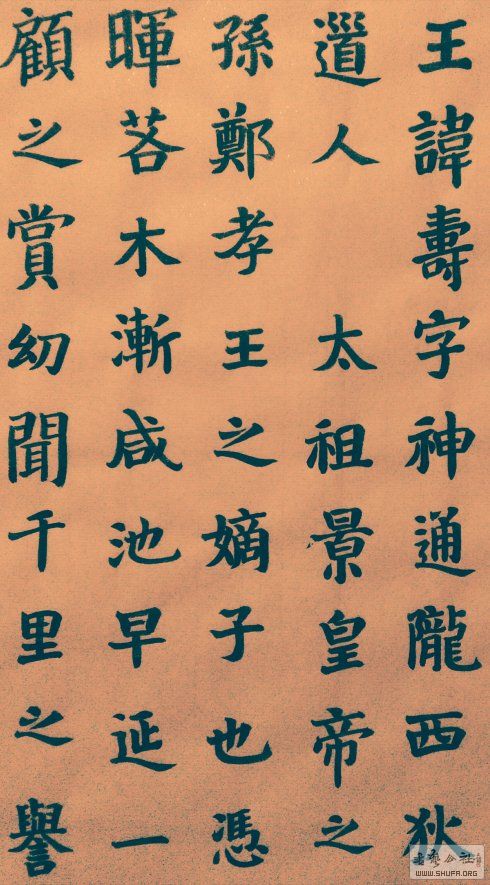 王諱壽字神通隴西狄
道人 太祖景皇帝之
孫鄭孝王之嫡子也憑
暉若木漸咸池早延一
顧之賞幼聞千里之譽
WWW.SHUFA.ORG